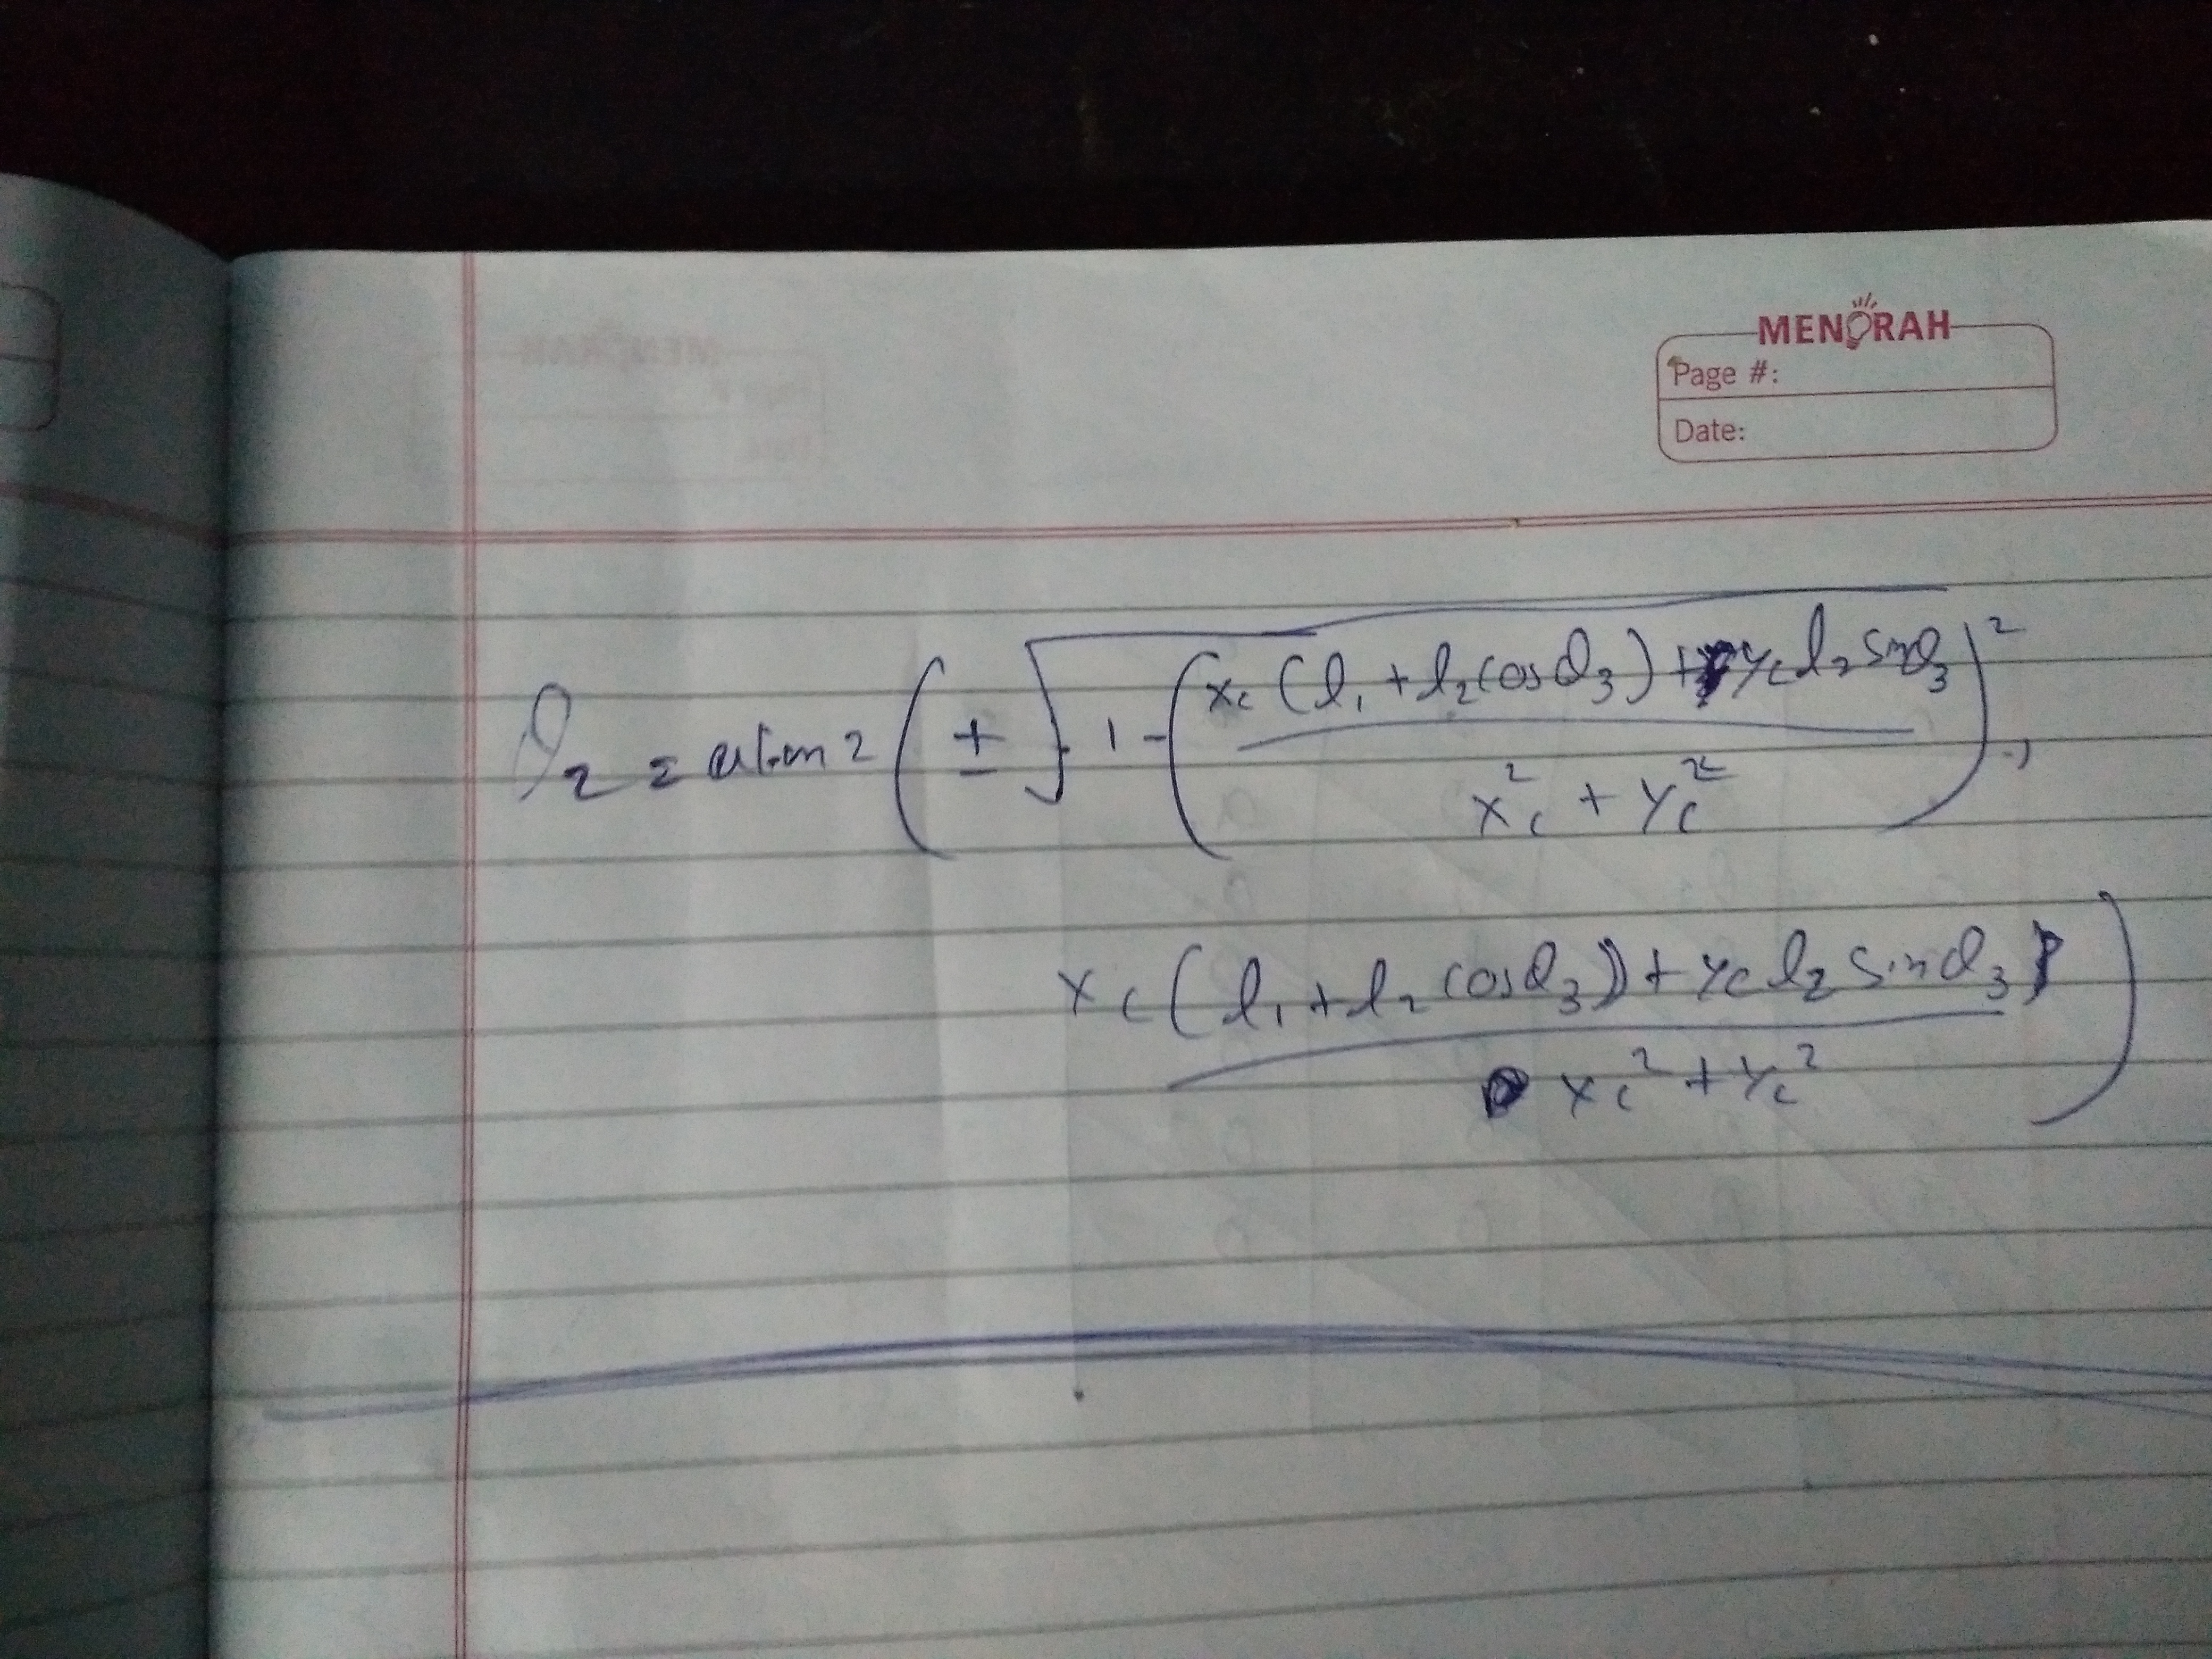 MENORAH
Page #:
Date:
θ₂ = atan2 ( ± √ 1 - ( (x_c (l₁ + l₂ cosθ₃) + y_c l₂ sinθ₃) / (x_c² + y_c²) )² ,
(x_c (l₁ + l₂ cosθ₃) + y_c l₂ sinθ₃) / (x_c² + y_c²) )